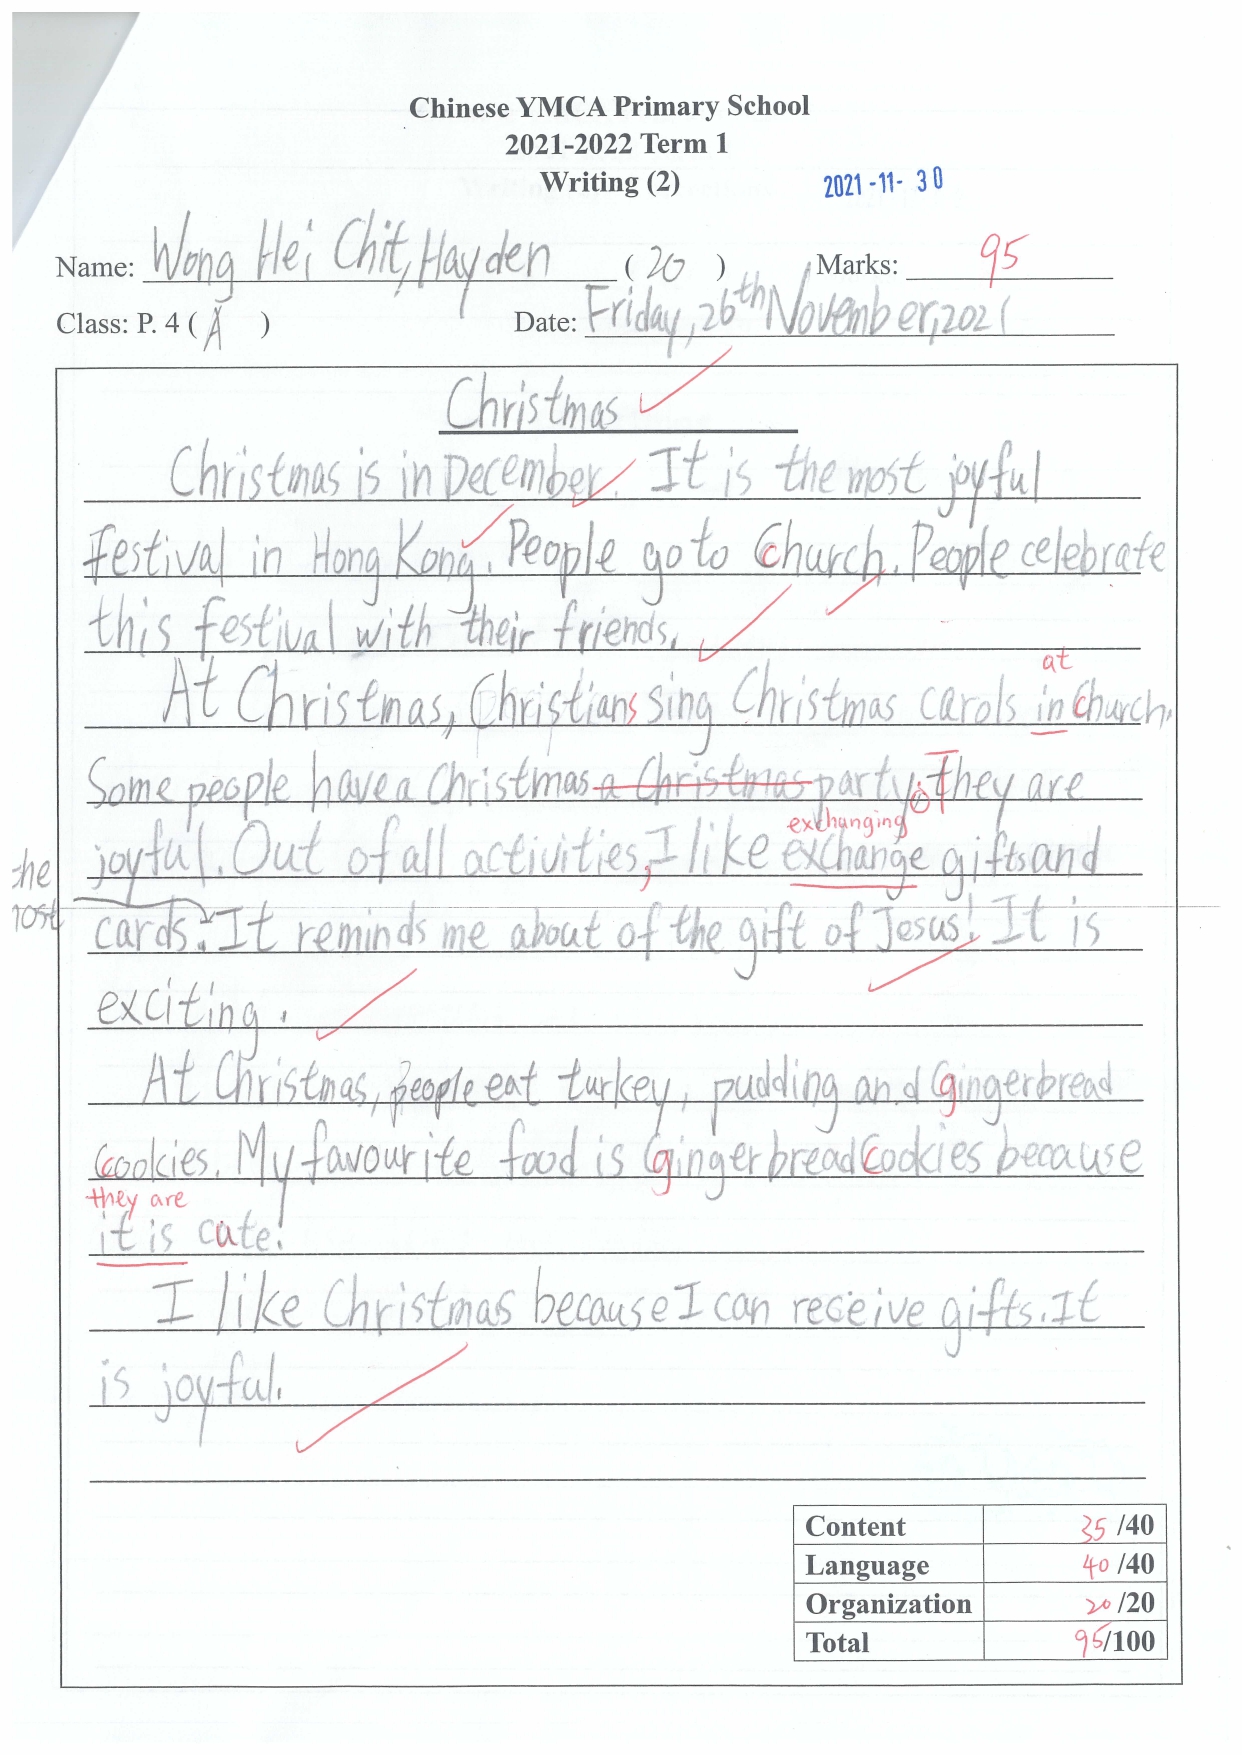 Chinese YMCA Primary School
2021-2022 Term 1
Writing (2)
2021-11-30
Name: Wong Hei Chit, Hayden (20) Marks: 95
Class: P. 4 (A) Date: Friday, 26th November, 2021
Christmas
Christmas is in December. It is the most joyful
festival in Hong Kong. People go to church. People celebrate
this festival with their friends.
at
At Christmas, Christians sing Christmas carols in church.
Some people have a Christmas a Christmas party. They are
exchanging
joyful. Out of all activities, I like exchange gifts and
the most
cards. It reminds me about of the gift of Jesus! It is
exciting.
At Christmas, people eat turkey, pudding and gingerbread
cookies. My favourite food is gingerbread cookies because
they are
it is cute!
I like Christmas because I can receive gifts. It
is joyful.
Content 35 /40
Language 40 /40
Organization 20 /20
Total 95/100